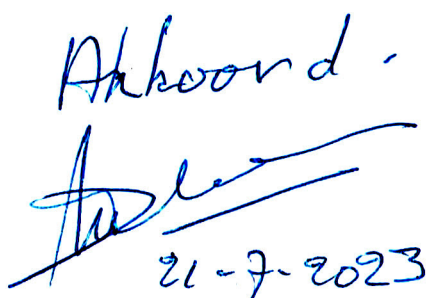 Akkoord.
21-7-2023